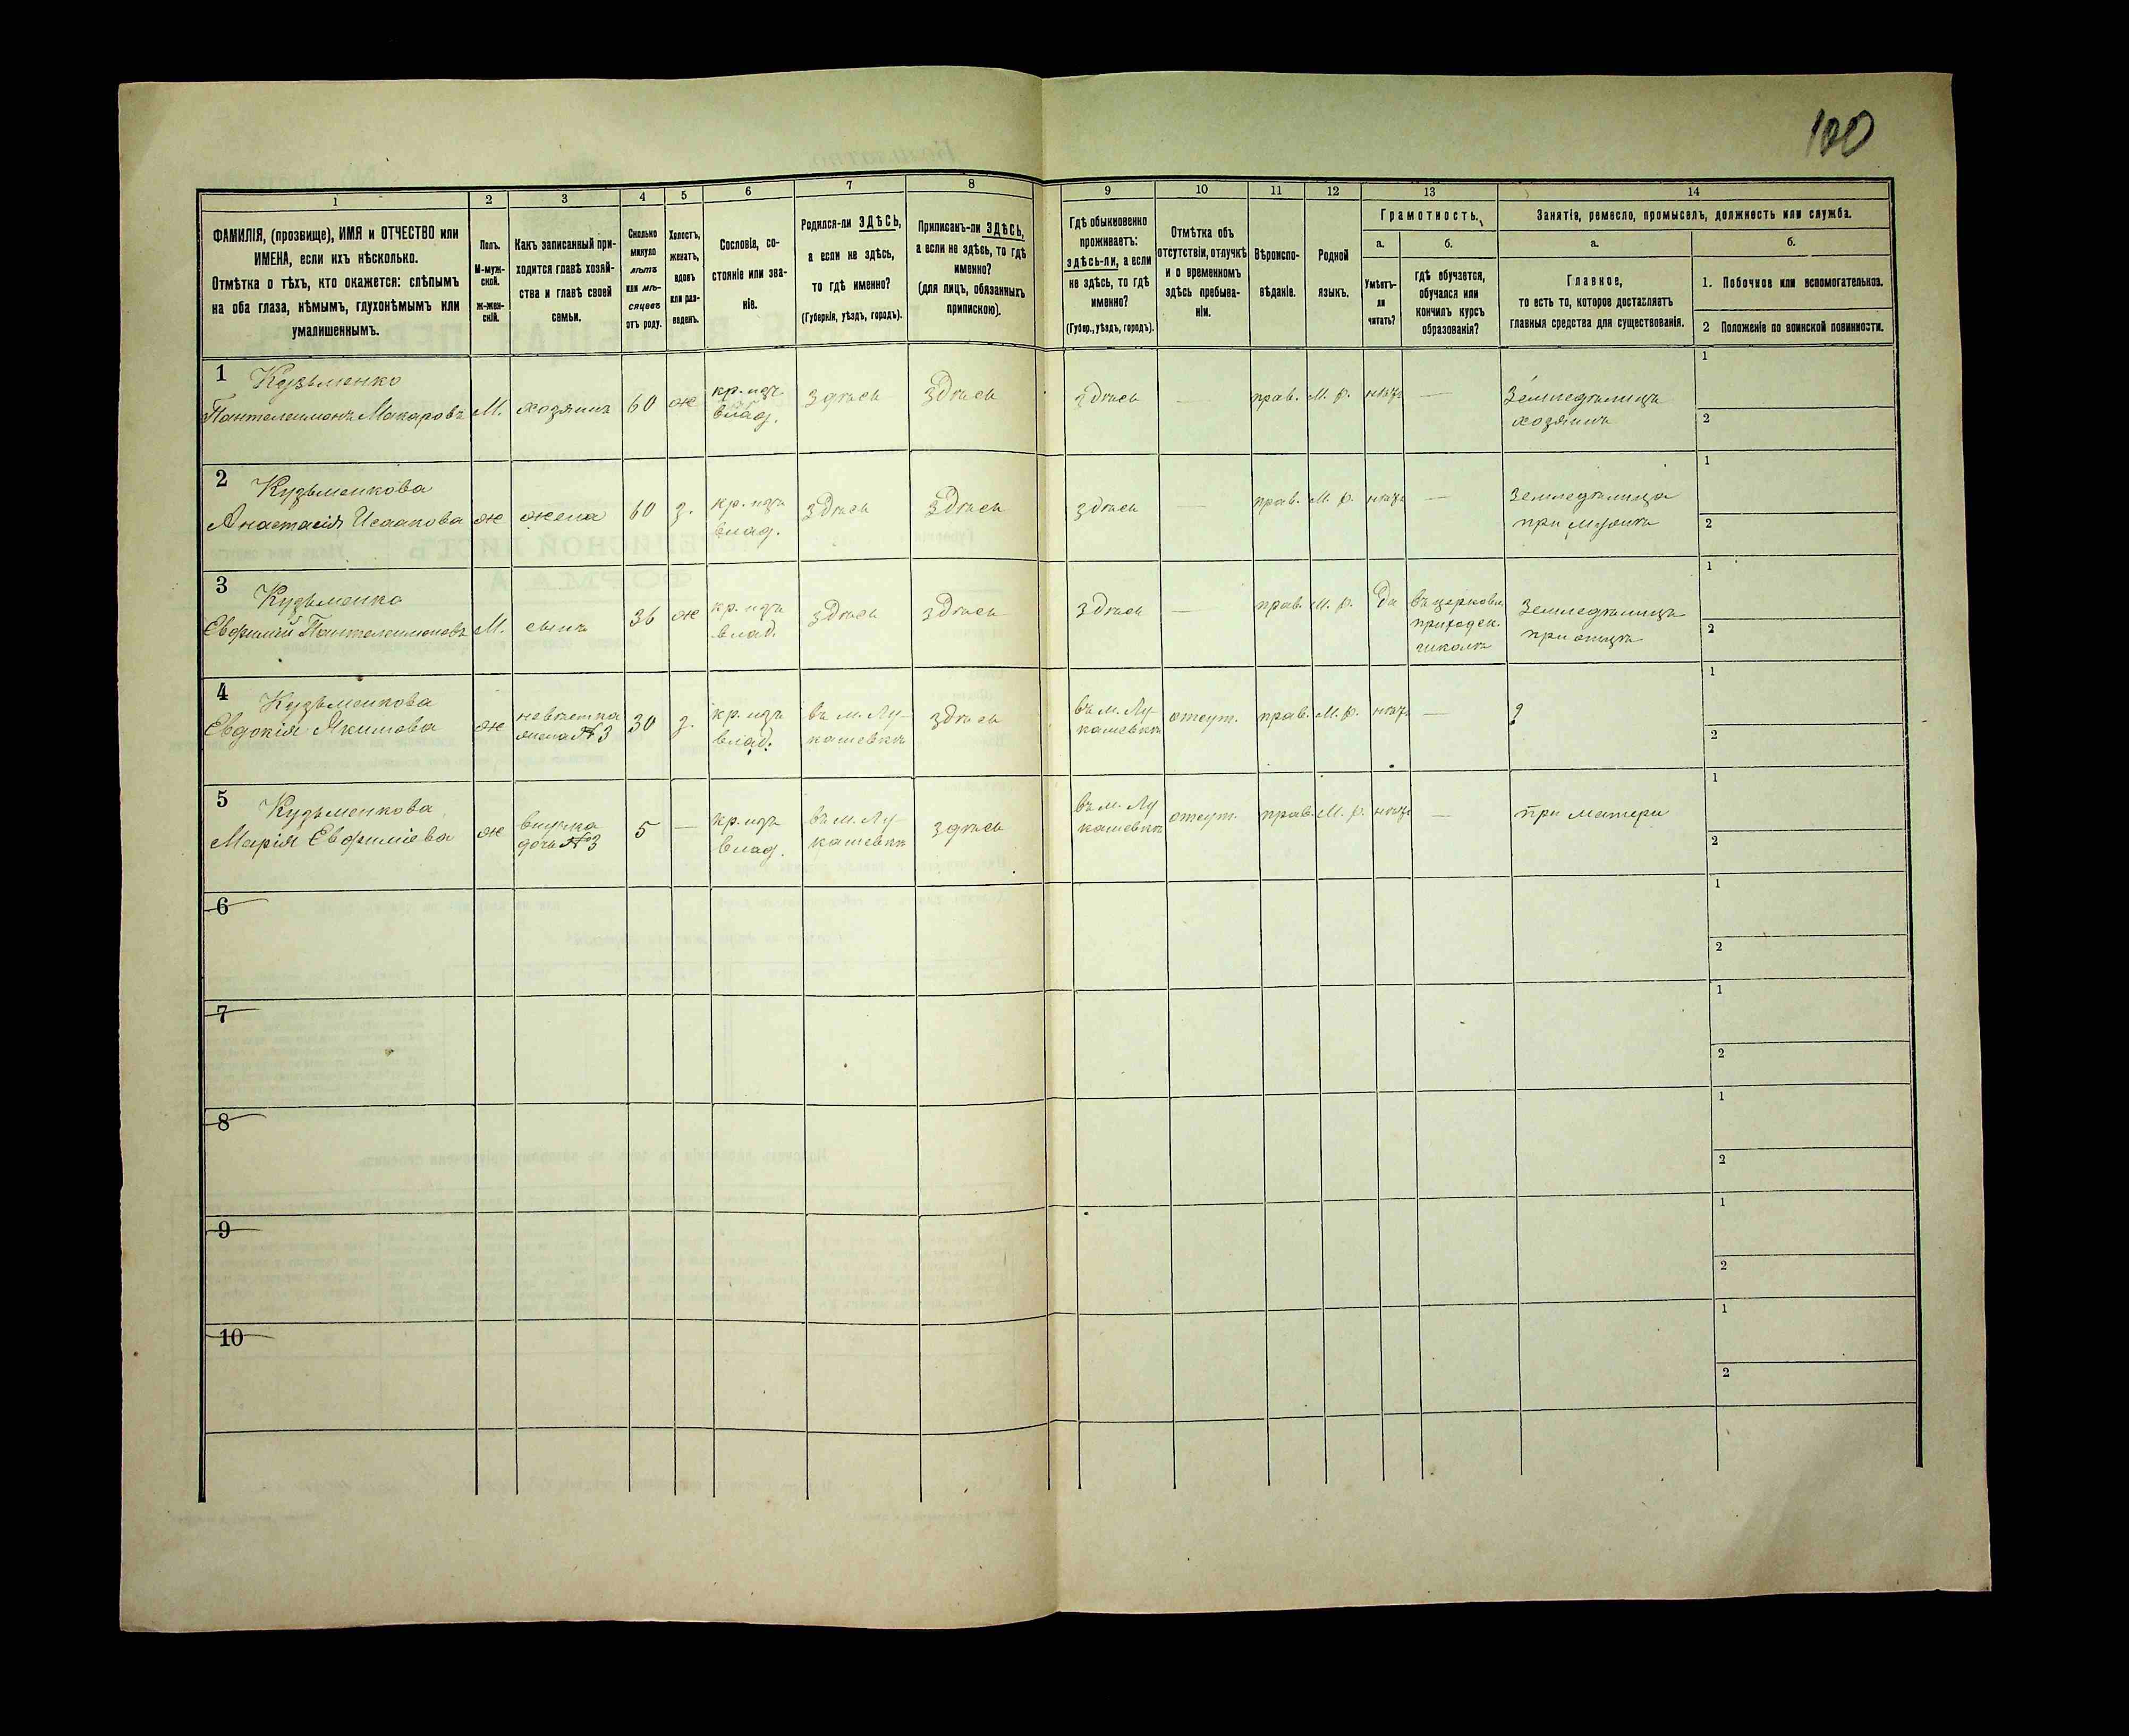 100
1
2
3
4
5
6
7
8
9
10
11
12
13
14
ФАМИЛІЯ, (прозвище), ИМЯ и ОТЧЕСТВО или
ИМЕНА, если ихъ нѣсколько.
Отмѣтка о тѣхъ, кто окажется: слѣпымъ
на оба глаза, нѣмымъ, глухонѣмымъ или
умалишеннымъ.
Полъ.
М-муж-
ской.
ж-жен-
скій.
Какъ записанный при-
ходится главѣ хозяй-
ства и главѣ своей
семьи.
Сколько
минуло
лѣтъ
или мѣ-
сяцевъ
отъ роду.
Холостъ,
женатъ,
вдовъ
или раз-
веденъ.
Сословіе, со-
стояніе или зва-
ніе.
Родился-ли ЗДѢСЬ,
а если не здѣсь,
то гдѣ именно?
(Губернія, уѣздъ, городъ).
Приписанъ-ли ЗДѢСЬ,
а если не здѣсь, то гдѣ
именно?
(для лицъ, обязанныхъ
припискою).
Гдѣ обыкновенно
проживаетъ:
здѣсь-ли, а если
не здѣсь, то гдѣ
именно?
(Губер., уѣздъ, городъ).
Отмѣтка объ
отсутствіи, отлучкѣ
и о временномъ
здѣсь пребыва-
ніи.
Вѣроиспо-
вѣданіе.
Родной
языкъ.
Грамотность.
а.
Умѣетъ-
ли
читать?
б.
гдѣ обучается,
обучался или
кончилъ курсъ
образованія?
Занятіе, ремесло, промыселъ, должность или служба.
а.
Главное,
то есть то, которое доставляетъ
главныя средства для существованія.
б.
1. Побочное или вспомогательное.
2 Положеніе по воинской повинности.
1 Кузьменко
Пантелеимонъ Макаровъ М. хозяинъ 60 ж кр. изъ влад. здѣсь здѣсь здѣсь — прав. М. р. нѣтъ — Земледѣлецъ
хозяинъ
1
2
2 Кузьменкова
Анастасія Исаакова ж жена 60 з. кр. изъ влад. здѣсь здѣсь здѣсь — прав. М. р. нѣтъ — Земледѣлица
при мужѣ
1
2
3 Кузьменко
Евфимій Пантелеимоновъ М. сынъ 36 ж кр. изъ влад. здѣсь здѣсь здѣсь — прав. М. р. Да въ церковн.
приходск.
школѣ
Земледѣлецъ
при отцѣ
1
2
4 Кузьменкова
Евдокія Якимова ж невѣстка
жена № 3 30 з. кр. изъ влад. въ м. Лу-
кашевкѣ здѣсь въ м. Лу-
кашевкѣ отсут. прав. М. р. нѣтъ — ?
1
2
5 Кузьменкова
Марія Евфиміева ж внучка
дочь № 3 5 — кр. изъ влад. въ м. Лу-
кашевкѣ здѣсь въ м. Лу
кашевкѣ отсут. прав. М. р. нѣтъ — при матери
1
2
6
1
2
7
1
2
8
1
2
9
1
2
10
1
2